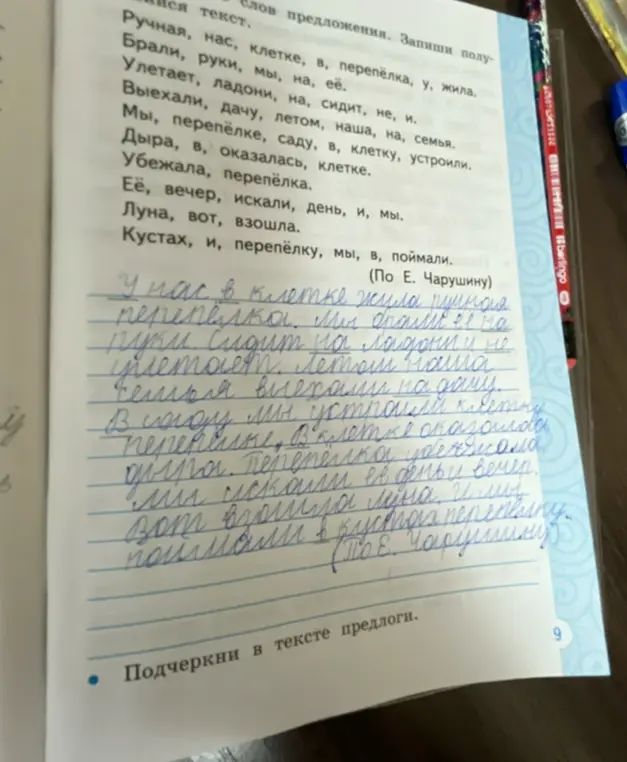 слов предложения. Запиши полу-
текст.
Ручная, нас, клетке, в, перепёлка, у, жила.
Брали, руки, мы, на, её.
Улетает, ладони, на, сидит, не, и.
Выехали, дачу, летом, наша, на, семья.
Мы, перепёлке, саду, в, клетку, устроили.
Дыра, в, оказалась, клетке.
Убежала, перепёлка.
Её, вечер, искали, день, и, мы.
Луна, вот, взошла.
Кустах, и, перепёлку, мы, в, поймали.
(По Е. Чарушину)
У нас в клетке жила ручная
перепёлка. Мы брали её на
руки. Сидит на ладони и не
улетает. Летом наша
семья выехали на дачу.
В саду мы устроили клетку
перепёлке. В клетке оказалась
дыра. Перепёлка убежала.
Мы искали её день и вечер.
Вот взошла луна. И мы
поймали в кустах перепёлку.
(По Е. Чарушину)
• Подчеркни в тексте предлоги.
9